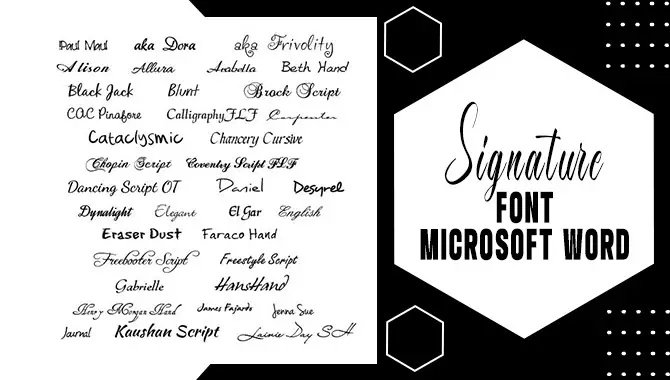 Paul Maul aka Dora aka Frivolity
Alison Allura Arabella Beth Hand
Black Jack Blunt Brock Script
CAC Pinafore CalligraphyFLF Carpenter
Cataclysmic Chancery Cursive
Chopin Script Coventry Script FLF
Dancing Script OT Daniel Desyrel
Dynalight Elegant El Gar English
Eraser Dust Faraco Hand
Freebooter Script Freestyle Script
Gabrielle HansHand
Henry Morgan Hand James Fajardo Jenna Sue
Journal Kaushan Script Lainie Day SH
Signature
FONT
MICROSOFT WORD